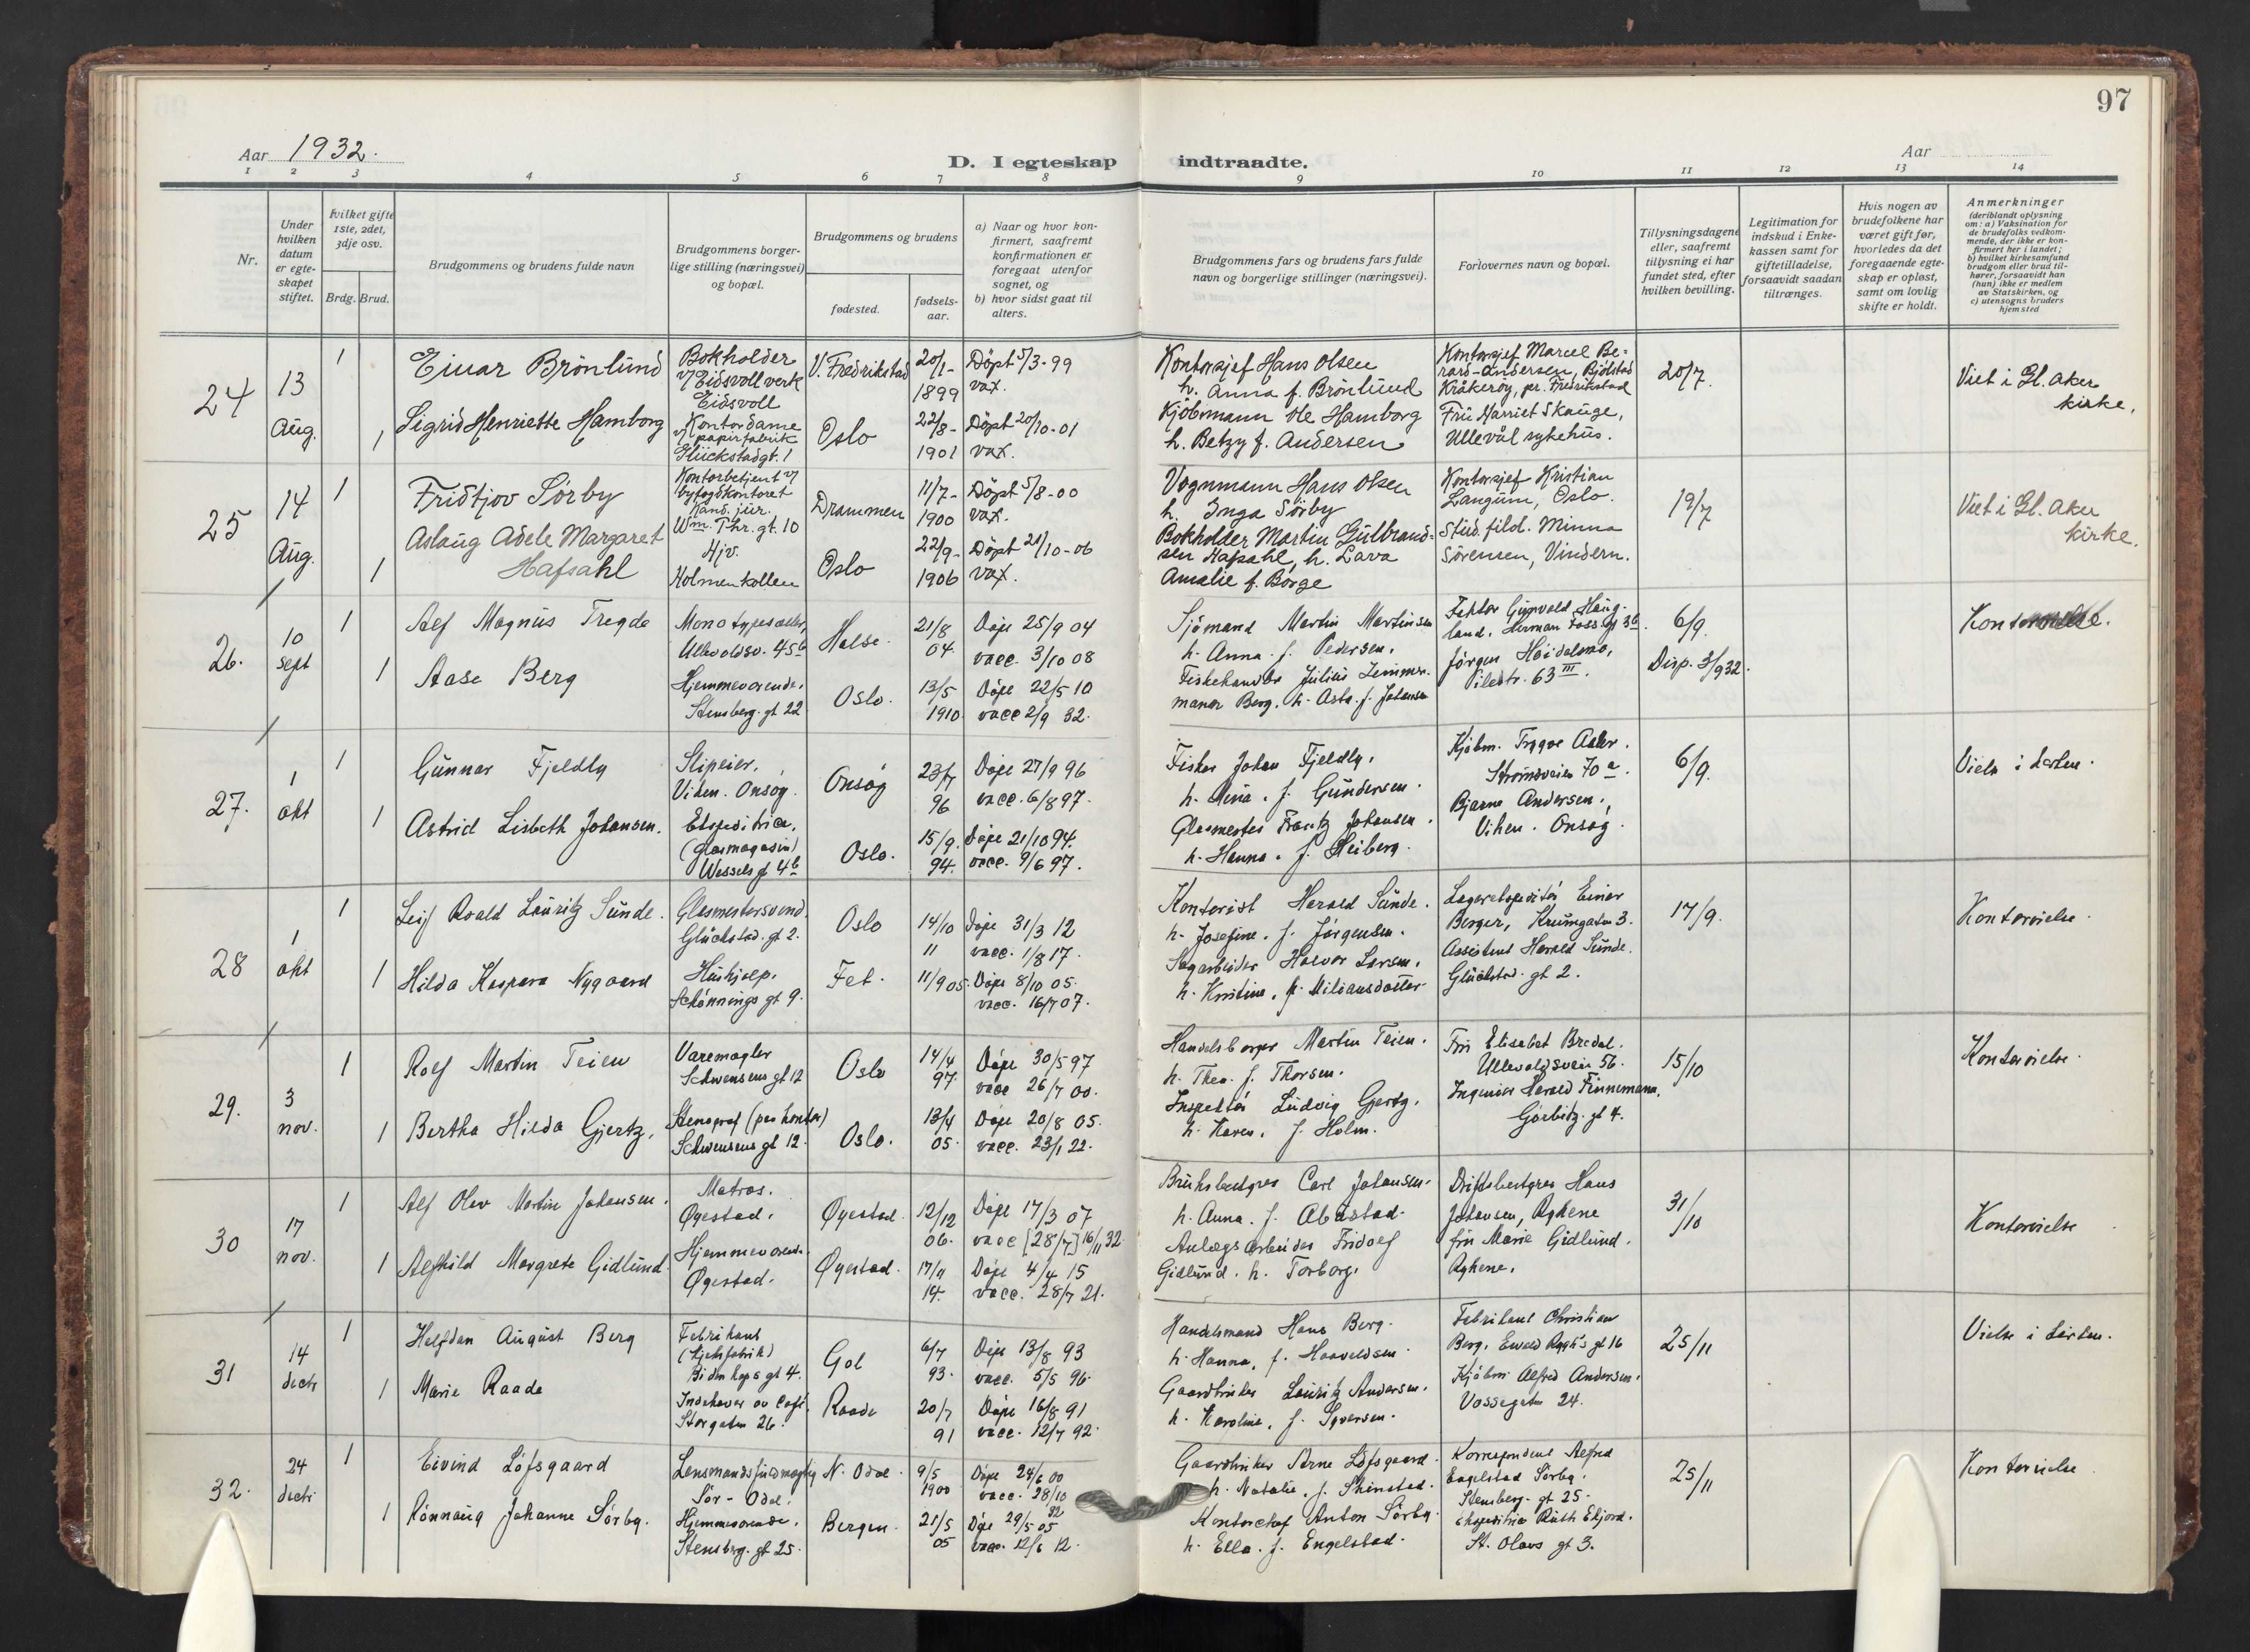 97
Aar 1932.
D. I egteskap indtraadte.
Aar
1 2 3 4 5 6 7 8 9 10 11 12 13 14
Nr.
Under hvilken datum er egteskapet stiftet.
Hvilket gifte 1ste, 2det, 3dje osv.
Brdg. Brud.
Brudgommens og brudens fulde navn
Brudgommens borgerlige stilling (næringsvei) og bopæl.
Brudgommens og brudens
fødested.
fødselsaar.
a) Naar og hvor konfirmert, saafremt konfirmationen er foregaat utenfor sognet, og
b) hvor sidst gaat til alters.
Brudgommens fars og brudens fars fulde navn og borgerlige stillinger (næringsvei).
Forlovernes navn og bopæl.
Tillysningsdagene eller, saafremt tillysning ei har fundet sted, efter hvilken bevilling.
Legitimation for indskud i Enkekassen samt for giftetilladelse, forsaavidt saadan tiltrænges.
Hvis nogen av brudefolkene har været gift før, hvorledes da det foregaaende egteskap er opløst, samt om lovlig skifte er holdt.
Anmerkninger
(deriblandt oplysning om: a) Vaksination for de brudefolks vedkommende, der ikke er konfirmert her i landet; b) hvilket kirkesamfund brudgom eller brud tilhører, forsaavidt han (hun) ikke er medlem av Statskirken, og c) utensogns bruders hjemsted
24
13
Aug.
1
1
Einar Brönlund
Sigrid Henriette Hamborg
Bokholder
v/ Eidsvoll verk
Eidsvoll
Kontordame
v/ papirfabrik
Glückstadgt. 1
V. Fredrikstad
Oslo
20/1-
1899
22/8-
1901
Döpt 5/3-99
vax.
Döpt 20/10-01
vax.
Kontorsjef Hans Olsen
h. Anna f. Brönlund
Kjöbmann Ole Hamborg
h. Betzy f. Andersen
Kontorsjef Marcel Be-
rard-Andersen, Bjölstad
Kråkeröy, pr. Fredrikstad
Frü Harriet Skauge,
Ullevål sykehus.
20/7.
Viet i Gl. Aker
kirke.
25
14
Aug.
1
1
Fridtjov Sörby
Aslaug Adele Margaret
Hafsahl
Kontorbetjent v/
byfogdkontoret
Kand. jur.
Wm. Thr. gt. 10
Hjv.
Holmenkollen
Drammen
Oslo
11/7-
1900
22/9-
1906
Döpt 5/8-00
vax.
Döpt 21/10-06
vax.
Vognmann Hans Olsen
h. Inga Sörby
Bokholder Martin Gulbrand-
sen Hafsahl, h. Lava
Amalie f. Börge
Kontorsjef Kristian
Langum, Oslo.
Stud. filol. Minna
Sörensen, Vindern.
19/7
Viet i Gl. Aker
kirke.
26.
10
sept
1
1
Alf Magnus Tregde
Aase Berg
Monotypesætter,
Ullevoldsv. 45b
Hjemmeværende.
Stensberg. gt 22
Halse.
Oslo.
21/8
04.
13/5
1910.
Döpt 25/9 04
vacc. 3/10 08
Döpt 22/5 10
vacc 2/9 32.
Sjömand Martin Martinsen
h. Anna. f. Pedersen.
Fiskehandler Julius Zimmer-
mann Berg. h. Asta. f. Johansen
Faktor Gunvald Haug-
land. Herman Foss gt 3b.
Jörgen Heidelmo,
Pilestr. 63 III.
6/9.
Disp. 3/9 32.
27.
1
okt
1
1
Gunnar Fjeldly
Astrid Lisbeth Johansen.
Slipeier.
Viken. Onsøy.
Ekspeditrice.
(Glasmagasin)
Wessels gt 4b
Onsøy
Oslo.
23/7
96
15/9.
94.
Döpt 27/9 96
vacc. 6/8 97.
Döpt 21/10 94.
vacc. 9/6 97.
Fisker Johan Fjeldly.
h. Mina. f. Gundersen.
Glasmester Frantz Johansen.
h. Hanna. f. Heiberg.
Kjöbm. Trygve Asler.
Strömsveien 70 a.
Bjarne Andersen.
Viken. Onsøy.
6/9.
Vielse i kirken.
28
1
okt
1
1
Leif Roald Lauritz Sunde.
Hilda Kaspara Nygaard
Glasmestersvend.
Glückstad. gt 2.
Hushjelp.
Schönnings gt 9.
Oslo
Fet.
14/10
11
11/9 05.
Döpt 31/3 12
vacc. 1/8 17.
Döpt 8/10 05.
vacc. 16/7 07.
Kontorist Harald Sunde.
h. Josefine. f. Jörgensen.
Sagarbeider Halvor Larsen.
h. Kristine. f. Miliansdatter
Lagerekspeditör Einar
Berger, Krumgaten 3.
Assistent Harald Sunde.
Glückstad. gt 2.
17/9.
Kontorvielse.
29.
3
nov.
1
1
Rolf Martin Teien
Bertha Hilda Gjertz.
Varemægler
Schwensens gt 12
Stenograf (paa kontor)
Schwensens gt 12.
Oslo
Oslo.
14/4
97.
13/4
05.
Döpt 30/5 97
vacc 26/7 00.
Döpt 20/8 05.
vacc. 23/1 22.
Handelsborger Martin Teien.
h. Thea. f. Thorsen.
Inspektör Ludvig Gjertz.
h. Karen. f. Holm.
Fru Elisabet Bredal.
Ullevoldsveien 56.
Ingeniør Harald Finnemann.
Gjørbitz. gt 4.
15/10
Kontorvielse.
30
17
nov.
1
1
Alf Olav Martin Johansen.
Alfhild Margrete Gidlund.
Matros.
Øyestad.
Hjemmeværende.
Øyestad.
Øyestad.
Øyestad.
12/12
06.
17/11
14.
Döpt 17/3 07
vacc [28/7] 16/11 32.
Döpt 4/4 15
vacc. 28/7 21.
Bruksbestyrer Carl Johansen.
h. Anna. f.
Anlægsarbeider Fridolf
Gidlund. h. Torborg.
Driftsbestyrer Hans
Johansen, Rykene
fru Marie Gidlund.
Rykene.
31/10
Kontorvielse
31
14
decb
1
1
Halfdan August Berg
Marie Raade
Fabrikant
(kjeksfabrik)
Bidenkaps gt 4.
Indehaver av Café.
Storgaten 26.
Gol
Raade
6/7
93.
20/7
91
Döpt 13/8 93
vacc. 5/5 96.
Döpt 16/8 91
vacc. 12/7 92.
Handelsmand Hans Berg.
h. Hanna. f. Haavaldsen.
Gaardbruker Lauritz Andersen.
h. Karoline. f. Syversen.
Fabrikant Christian
Berg. Ewald Ryghs gt 16
Kjöbm Alfred Andersen.
Vossegaten 24.
25/11
Vielse i kirken.
32.
24
decbr
1
1
Eivind Löfsgaard
Rönnaug Johanne Sörby.
Lensmandsfuldmægtig
Sör-Odal.
Hjemmeværende.
Stensberg. gt 25.
N. Odal.
Bergen.
9/5
1900
21/5
05
Döpt 24/6 00
vacc. 28/10
32
Döpt 29/5 05
vacc. 12/6 12.
Gaardbruker Arne Löfsgaard.
h. Natalie. f. Skinstad.
Kontorchef Anton Sörby.
h. Ella. f. Engelstad.
Korrespondent Alfred
Engelstad Sörby.
Stensberg. gt 25.
Ekspeditrice Ruth Ekjord.
St. Olavs gt 3.
25/11
Kontorvielse